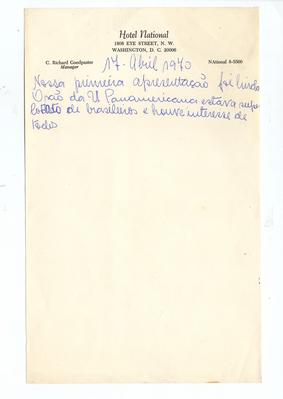 Hotel National
1808 EYE STREET, N. W.
WASHINGTON, D. C. 20006
C. Richard Goodpaster
Manager
NAtional 8-5500
17- Abril 1970
Nossa primeira apresentação foi linda
O da U Panamericana estava
de brasileiros e houve interesse de
todos